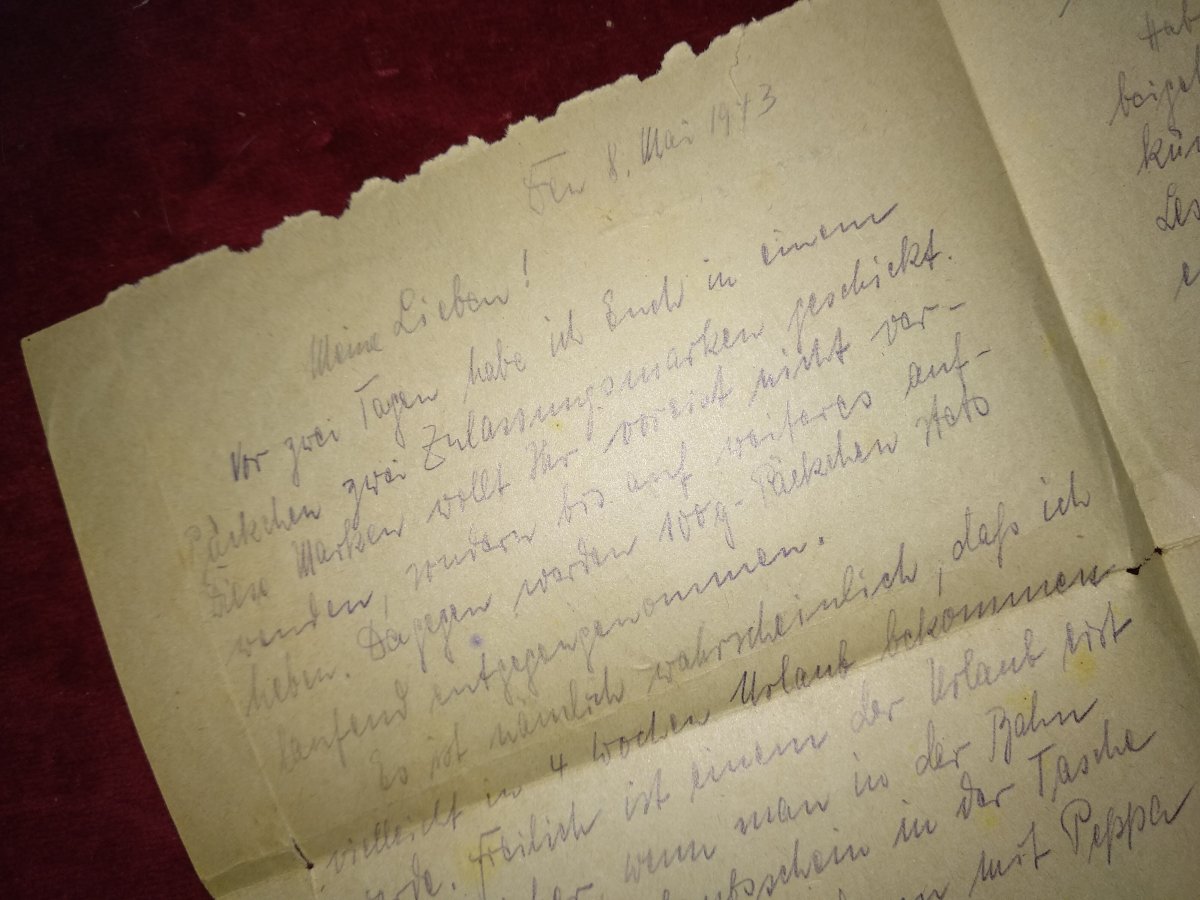 Den 8. Mai 1943
Meine Lieben!
Vor zwei Tagen habe ich Euch in einem
Päckchen zwei Zulassungsmarken geschickt.
Marken wollt Ihr vorerst nicht ver-
wenden, sondern bis auf weiteres auf-
heben. Dagegen werden 100g-Päckchen stets
laufend entgegengenommen.
Es ist nämlich wahrscheinlich, daß ich
vielleicht in 4 Wochen Urlaub bekommen
Freilich ist einem der Urlaub erst
wenn man in der Bahn
in der Tasche
mit Peppa
Hab
beige
kür
Les
e